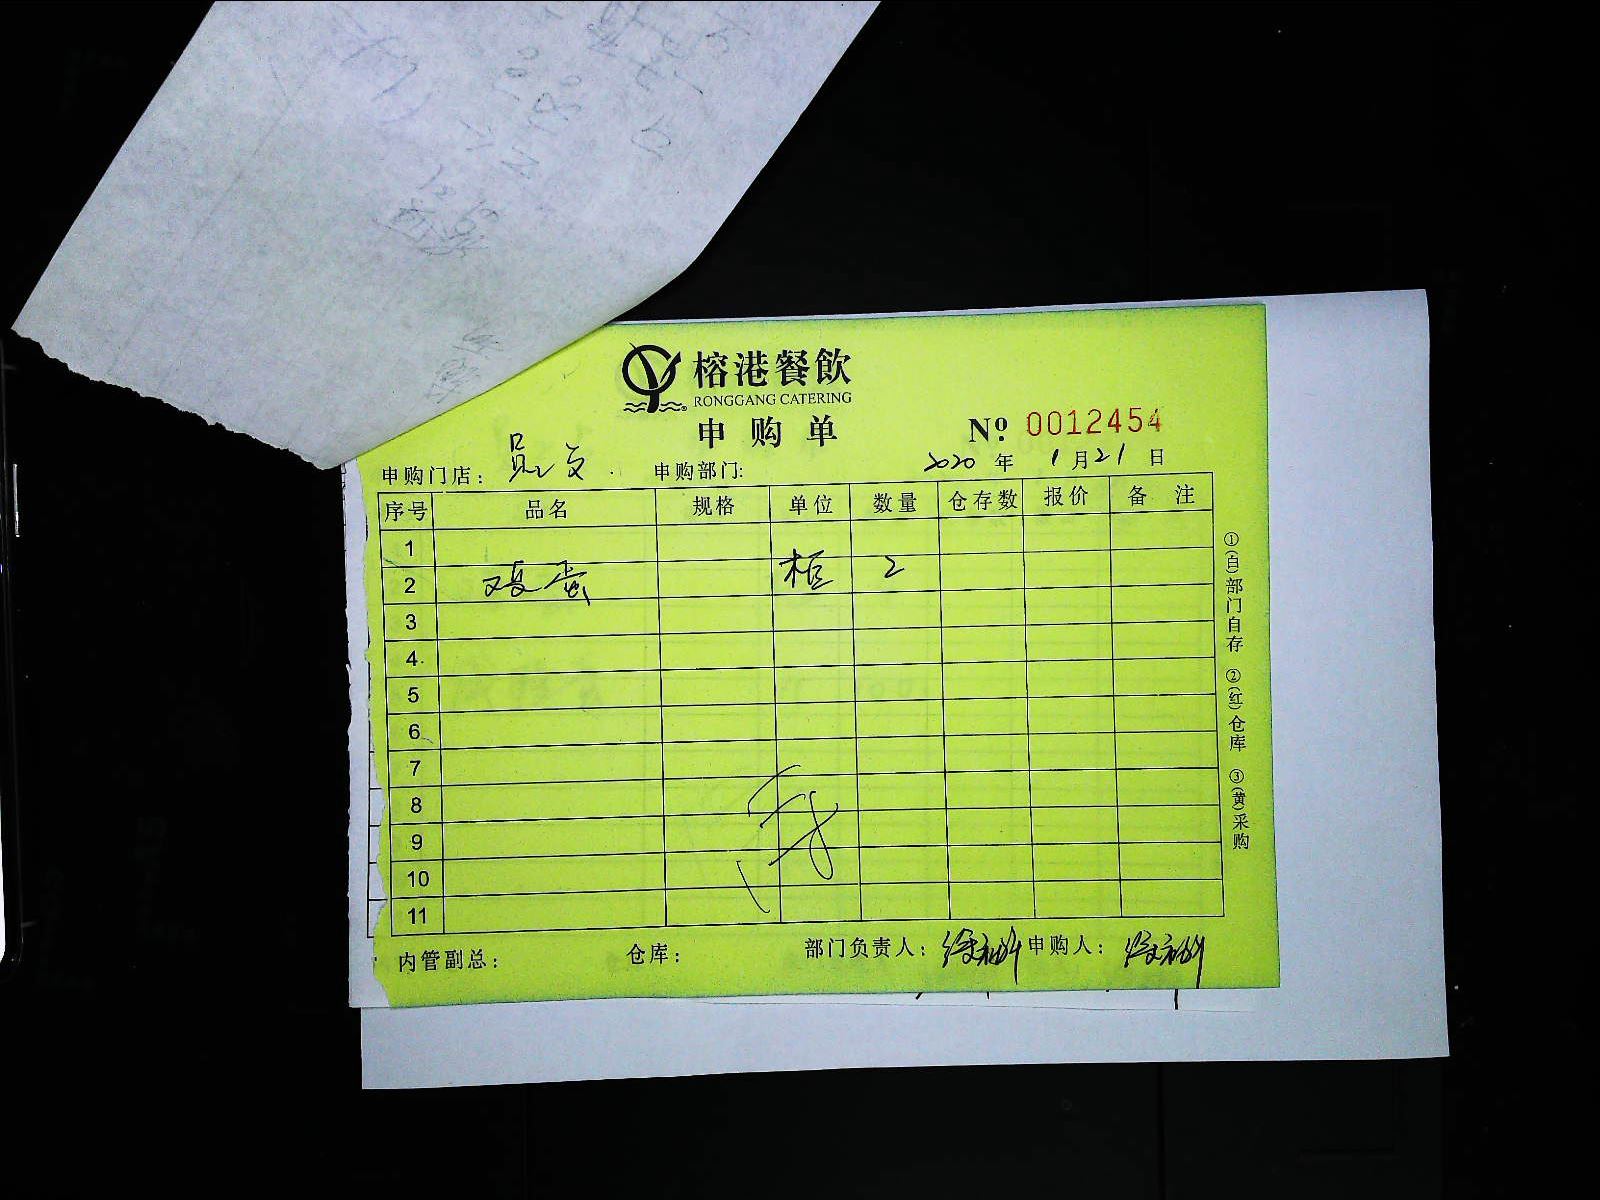 榕港餐飲
RONGGANG CATERING
申购单
№ 0012454
申购门店： 申购部门: 2020 年 1 月 21 日
序号 品名 规格 单位 数量 仓存数 报价 备 注
1
2 鸡蛋 柜 2
3
4
5
6
7
8
9
10
11
内管副总： 仓库： 部门负责人： 申购人：
①(自)部门自存 ②(红)仓库 ③(黄)采购